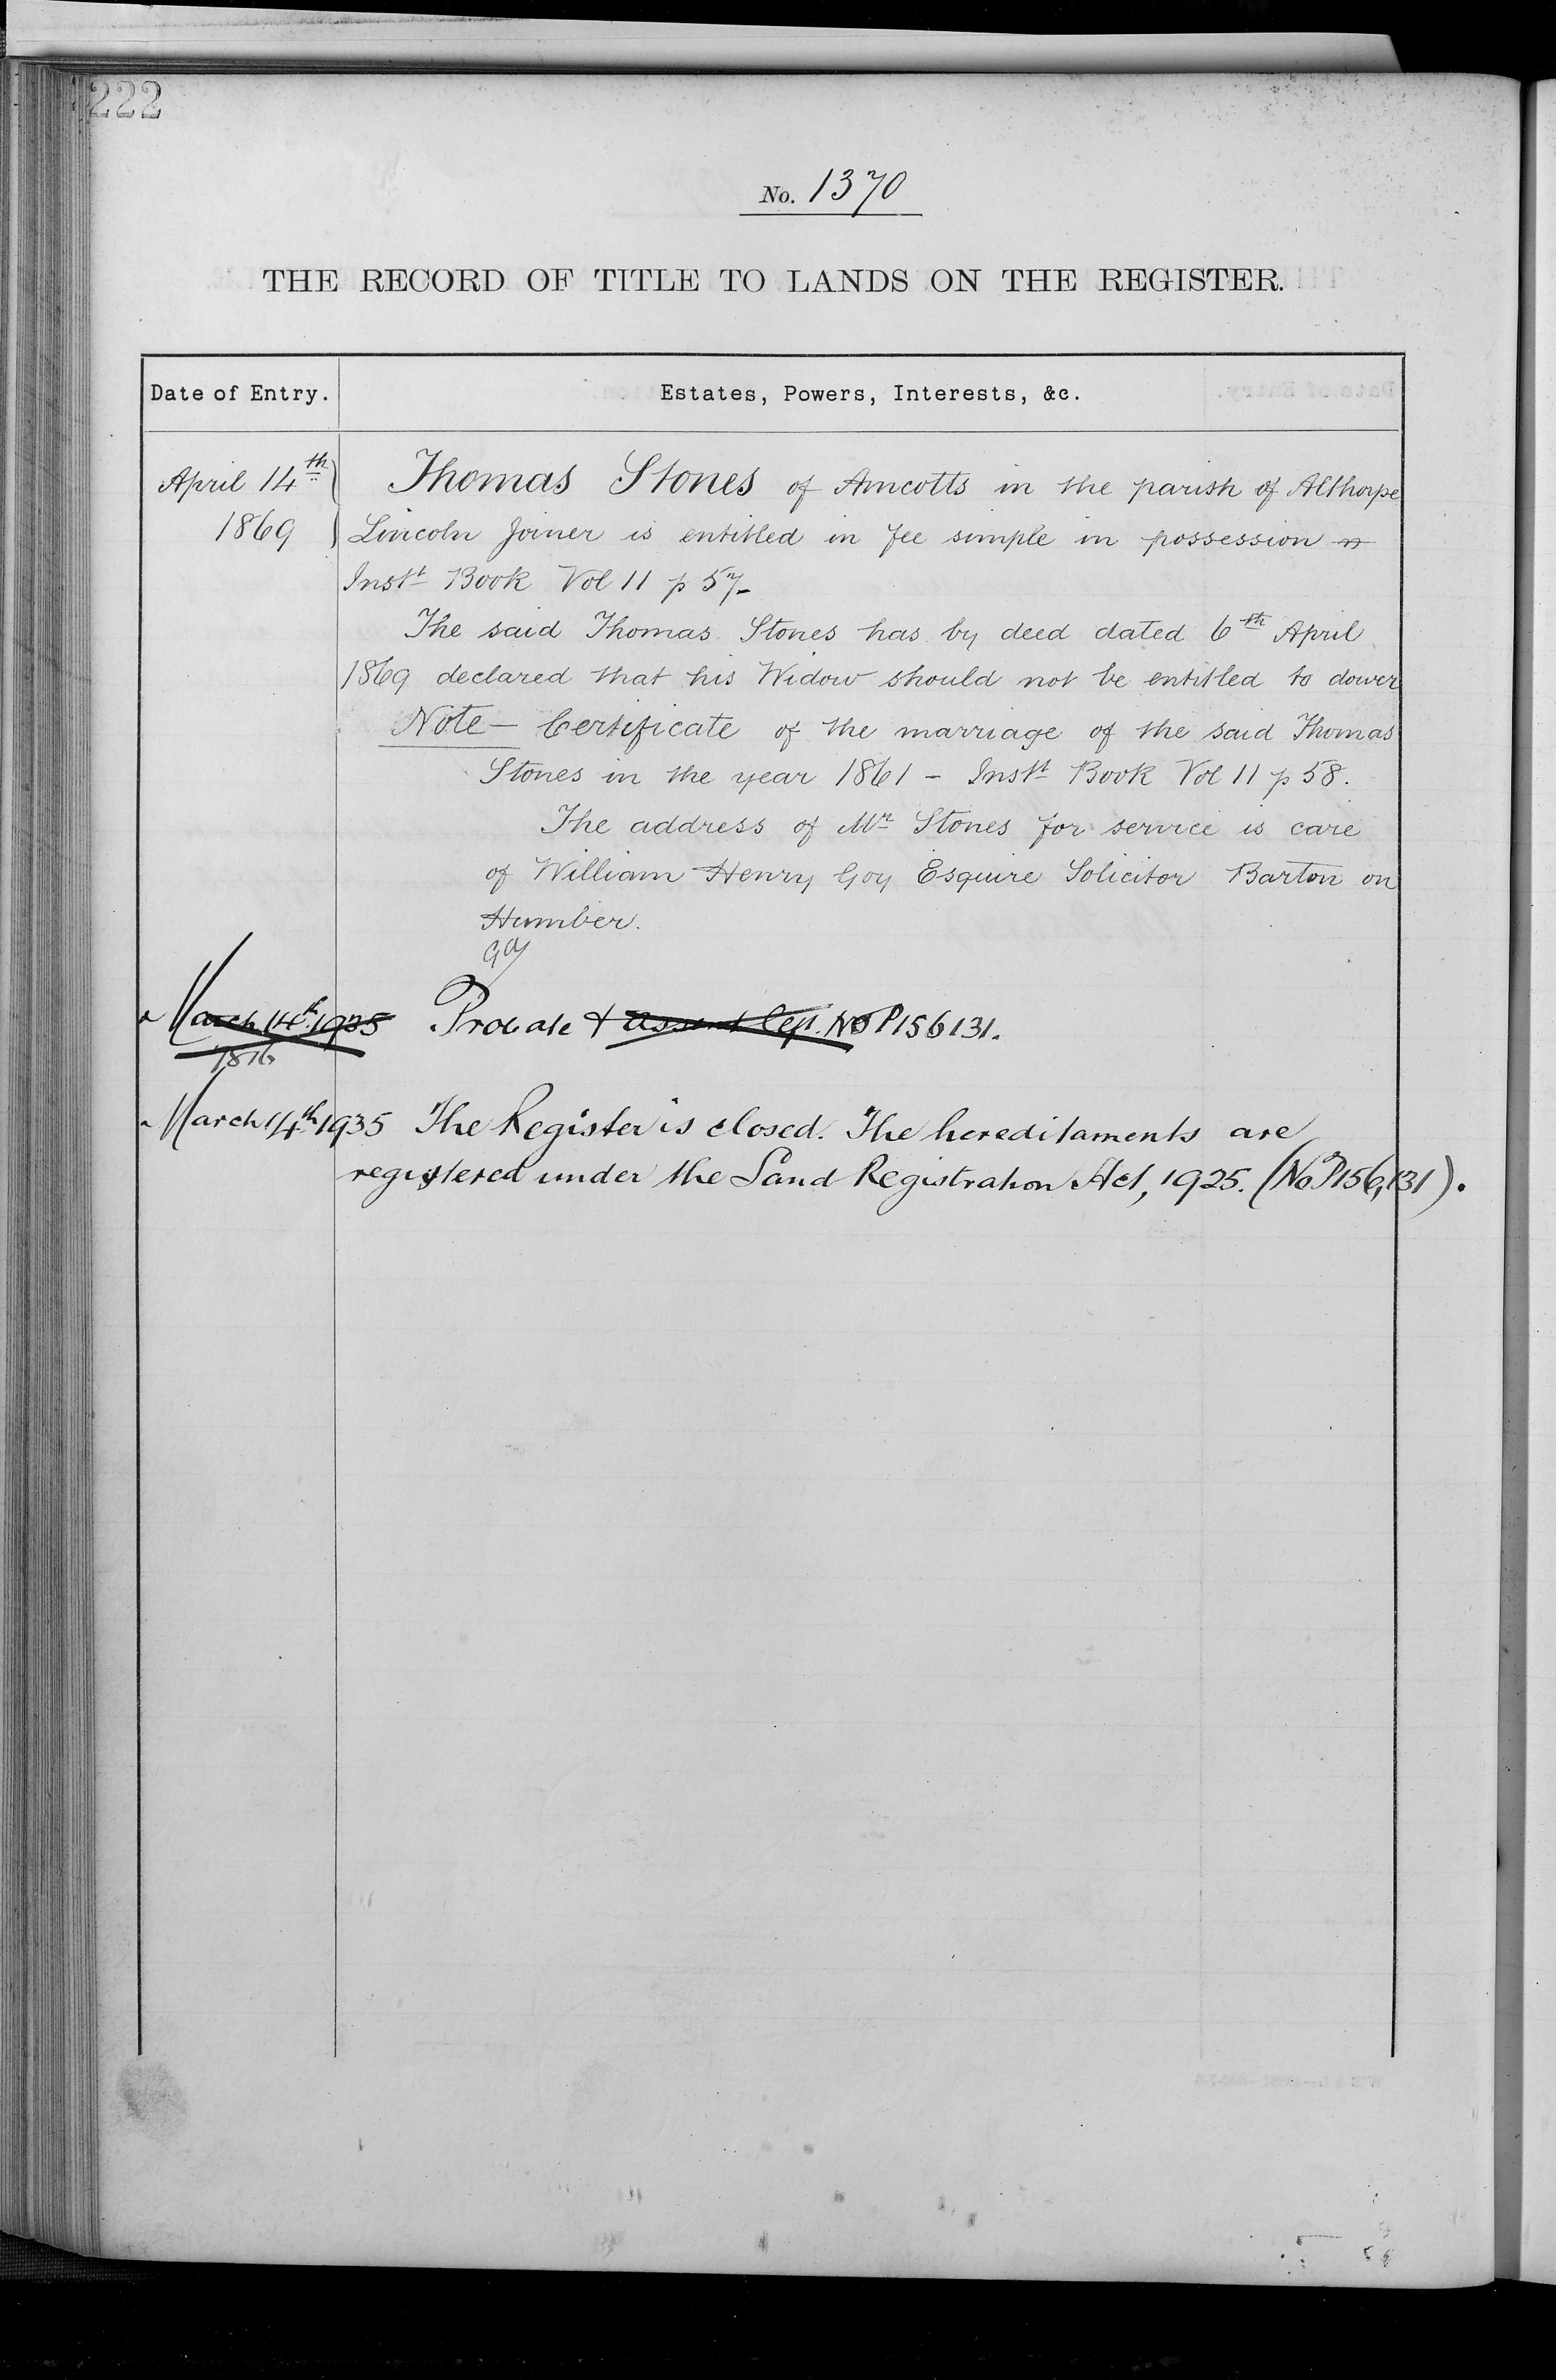 222
No. 1370
THE RECORD OF TITLE TO LANDS ON THE REGISTER.
Date of Entry. Estates, Powers, Interests, &c.
April 14th Thomas Stones of Amcotts in the parish of Althorpe
1869 Lincoln Joiner is entitled in fee simple in possession
Instt Book Vol 11 p 57
The said Thomas Stones has by deed dated 6th April
1869 declared that his Widow should not be entitled to dower
Note - Certificate of the marriage of the said Thomas
Stones in the year 1861 - Instt Book Vol 11 p 58.
The address of Mr Stones for service is care
of William Henry Goy Esquire Solicitor Barton on
Humber.
March 14th 1935 Probate & assent No P156131.
March 14th 1935 The Register is closed. The hereditaments are
registered under the Land Registration Act, 1925. (No P156,131).